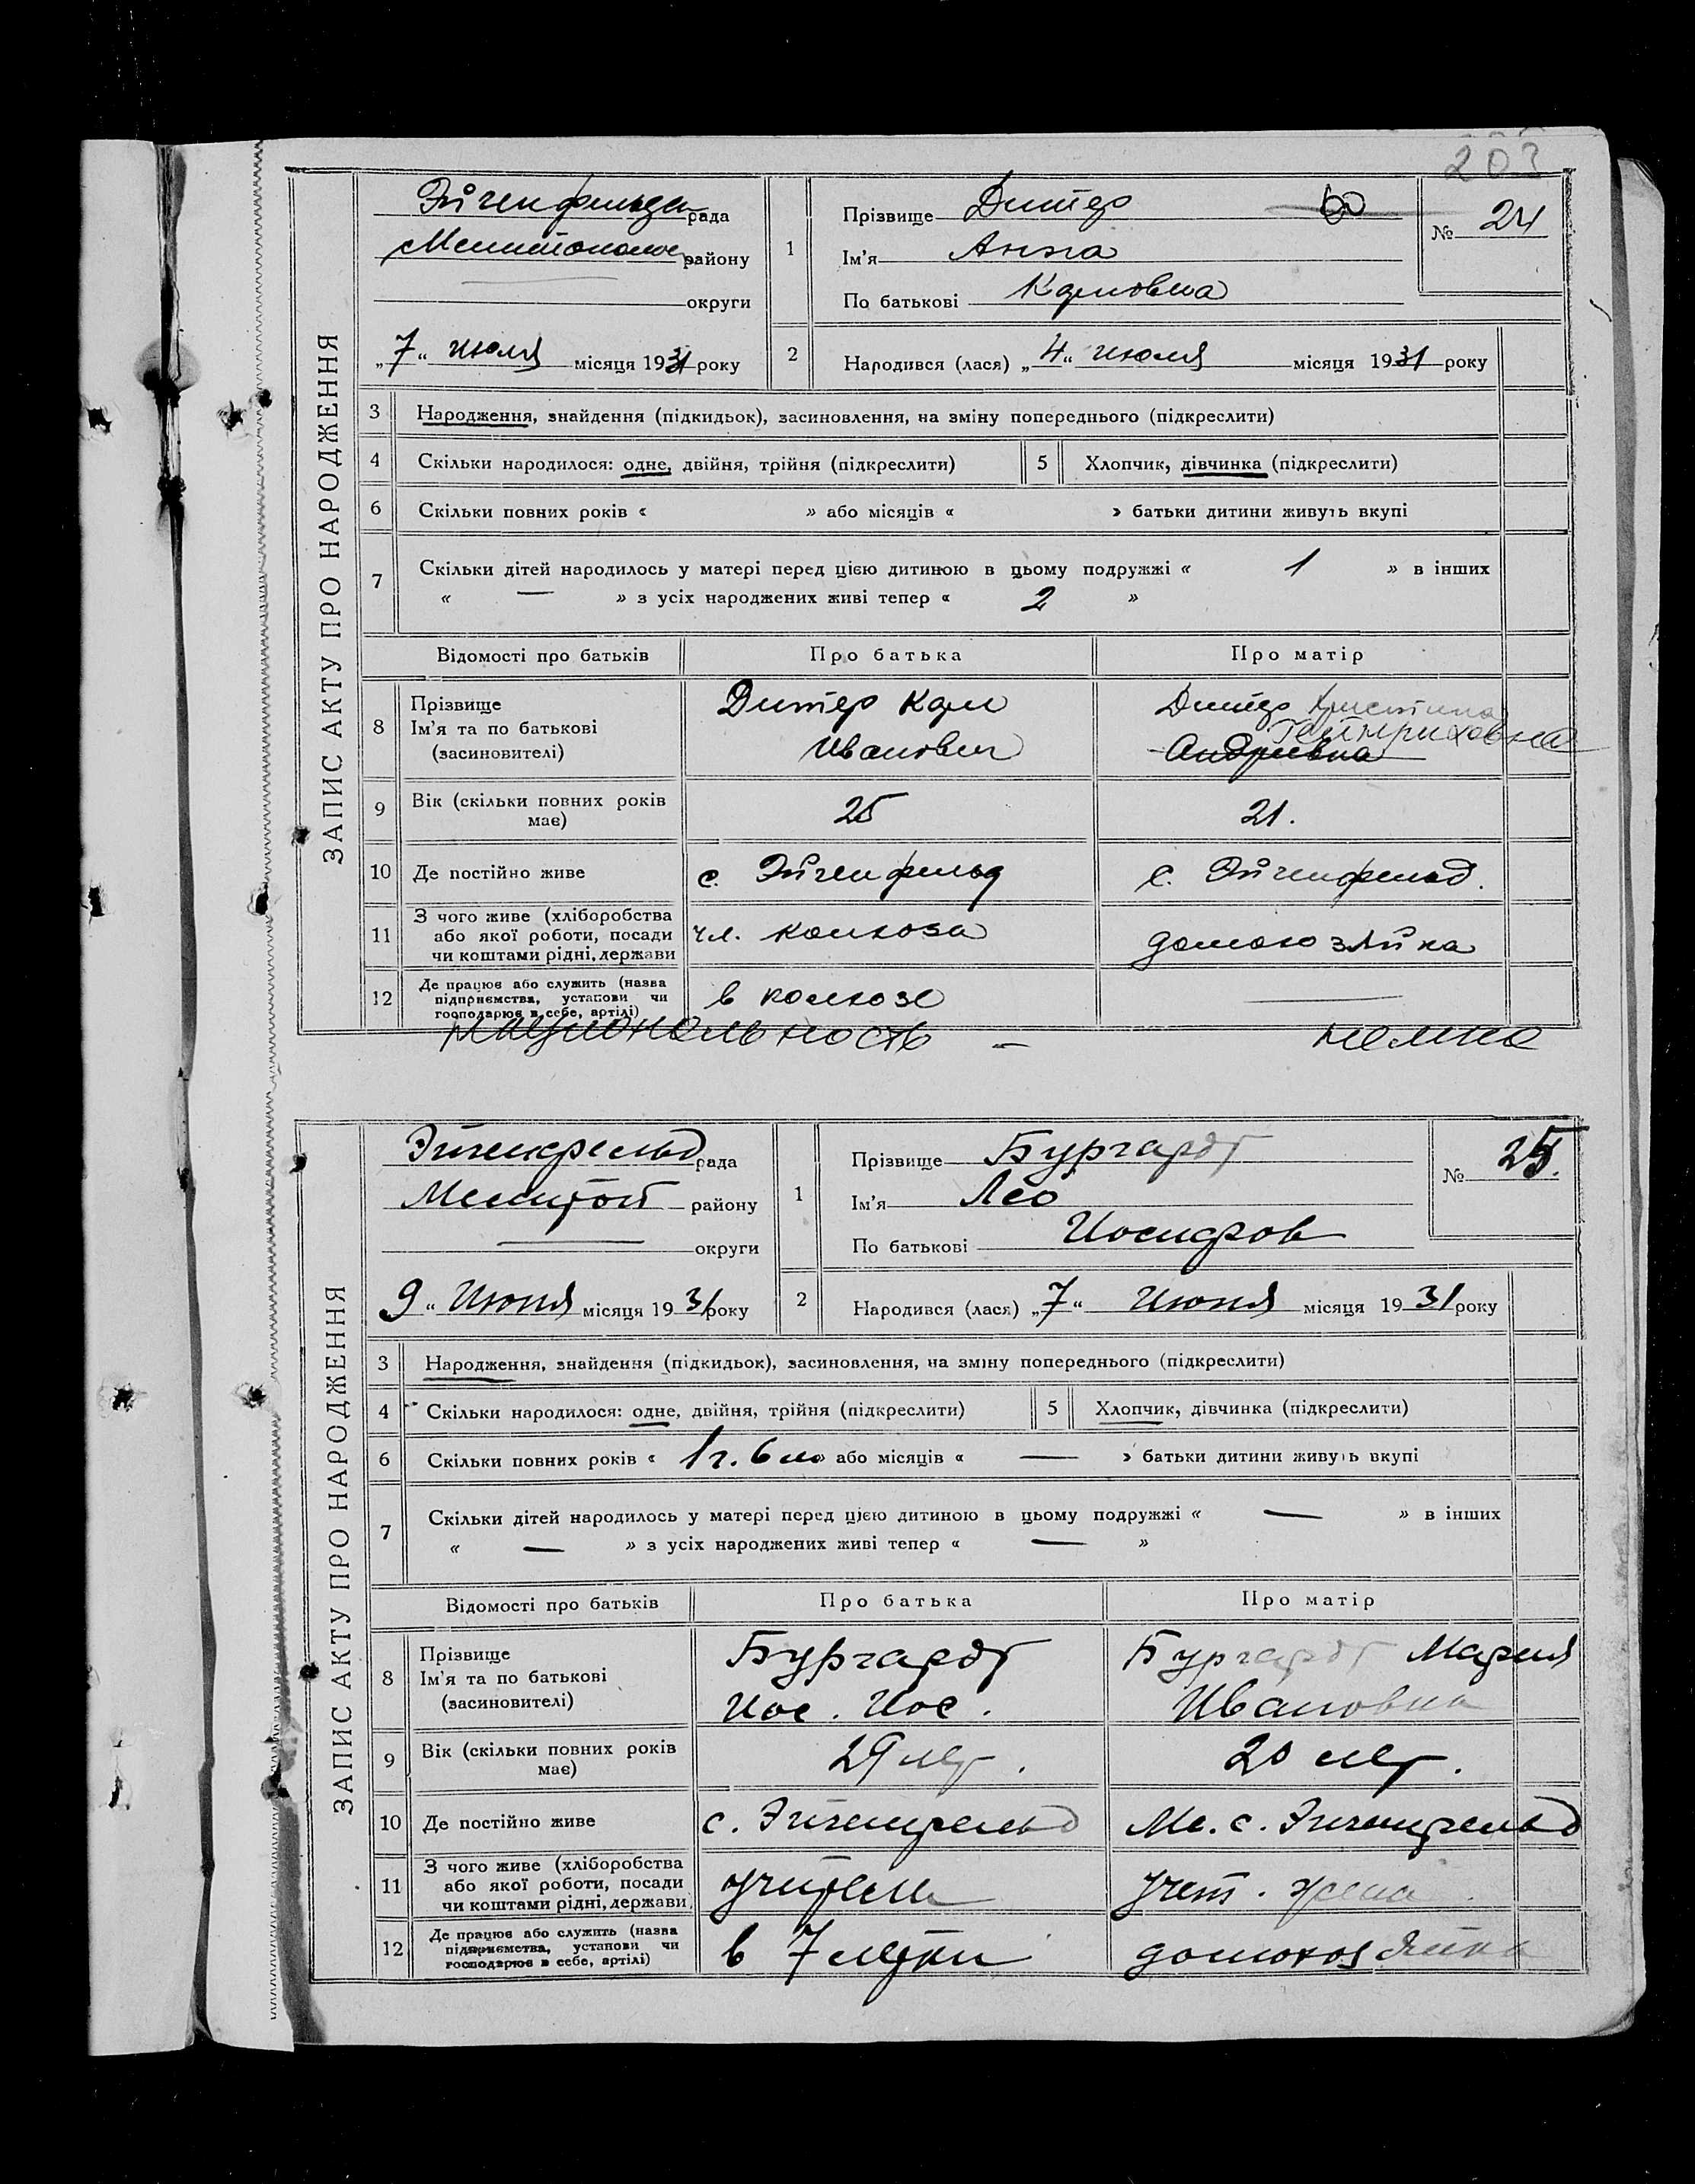 203
ЗАПИС АКТУ ПРО НАРОДЖЕННЯ
Эйгенфельде рада
Мелитопольс району
округи
„7“ июля місяця 1931 року
1
Прізвище Дитер 60
Ім'я Анна
По батькові Карловна
№ 24
2
Народився (лася) „4“ июля місяця 1931 року
3 Народження, знайдення (підкидьок), засиновлення, на зміну попереднього (підкреслити)
4 Скільки народилося: одне, двійня, трійня (підкреслити) 5 Хлопчик, дівчинка (підкреслити)
6 Скільки повних років « » або місяців « » батьки дитини живуть вкупі
7 Скільки дітей народилось у матері перед цією дитиною в цьому подружжі « 1 » в інших
« — » з усіх народжених живі тепер « 2 »
Відомості про батьків Про батька Про матір
8 Прізвище Ім'я та по батькові (засиновителі)
Дитер Карл
Иванович
Дитер Христина
Гейнриховна
Андреевна
9 Вік (скільки повних років має) 25 21.
10 Де постійно живе с. Эйгенфельд с. Эйгенфельд.
11 З чого живе (хліборобства або якої роботи, посади чи коштами рідні, держави чл. колхоза домохозяйка
12 Де працює або служить (назва підприємства, установи чи господарює в себе, артілі) в колхозе —
национальность — немка
ЗАПИС АКТУ ПРО НАРОДЖЕННЯ
Эйгенфельд рада
Мелитоп району
— округи
9“ Июня місяця 1931 року
1
Прізвище Бургардт
Ім'я Лео
По батькові Иосифов
№ 25.
2
Народився (лася) „7“ Июня місяця 1931 року
3 Народження, знайдення (підкидьок), засиновлення, на зміну попереднього (підкреслити)
4 Скільки народилося: одне, двійня, трійня (підкреслити) 5 Хлопчик, дівчинка (підкреслити)
6 Скільки повних років « 1 г. 6 м » або місяців « — » батьки дитини живуть вкупі
7 Скільки дітей народилось у матері перед цією дитиною в цьому подружжі « — » в інших
« — » з усіх народжених живі тепер « — »
Відомості про батьків Про батька Про матір
8 Прізвище Ім'я та по батькові (засиновителі)
Бургардт
Иос. Иос.
Бургардт Мария
Ивановна
9 Вік (скільки повних років має) 29 лет. 20 лет.
10 Де постійно живе с. Эйгенфельд с. Эйгенфельд
11 З чого живе (хліборобства або якої роботи, посади чи коштами рідні, держави учитель жена
12 Де працює або служить (назва підприємства, установи чи господарює в себе, артілі) в 7 летки домохозяйка